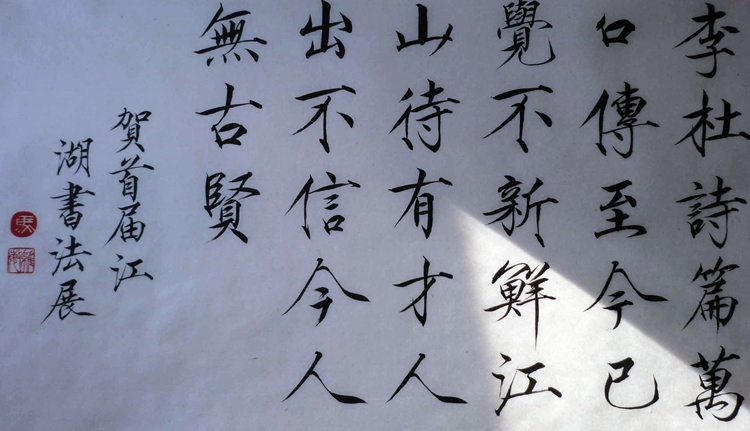 李杜詩篇萬
口傳至今已
覺不新鮮江
山待有才人
出不信今人
無古賢
賀首届江
湖書法展